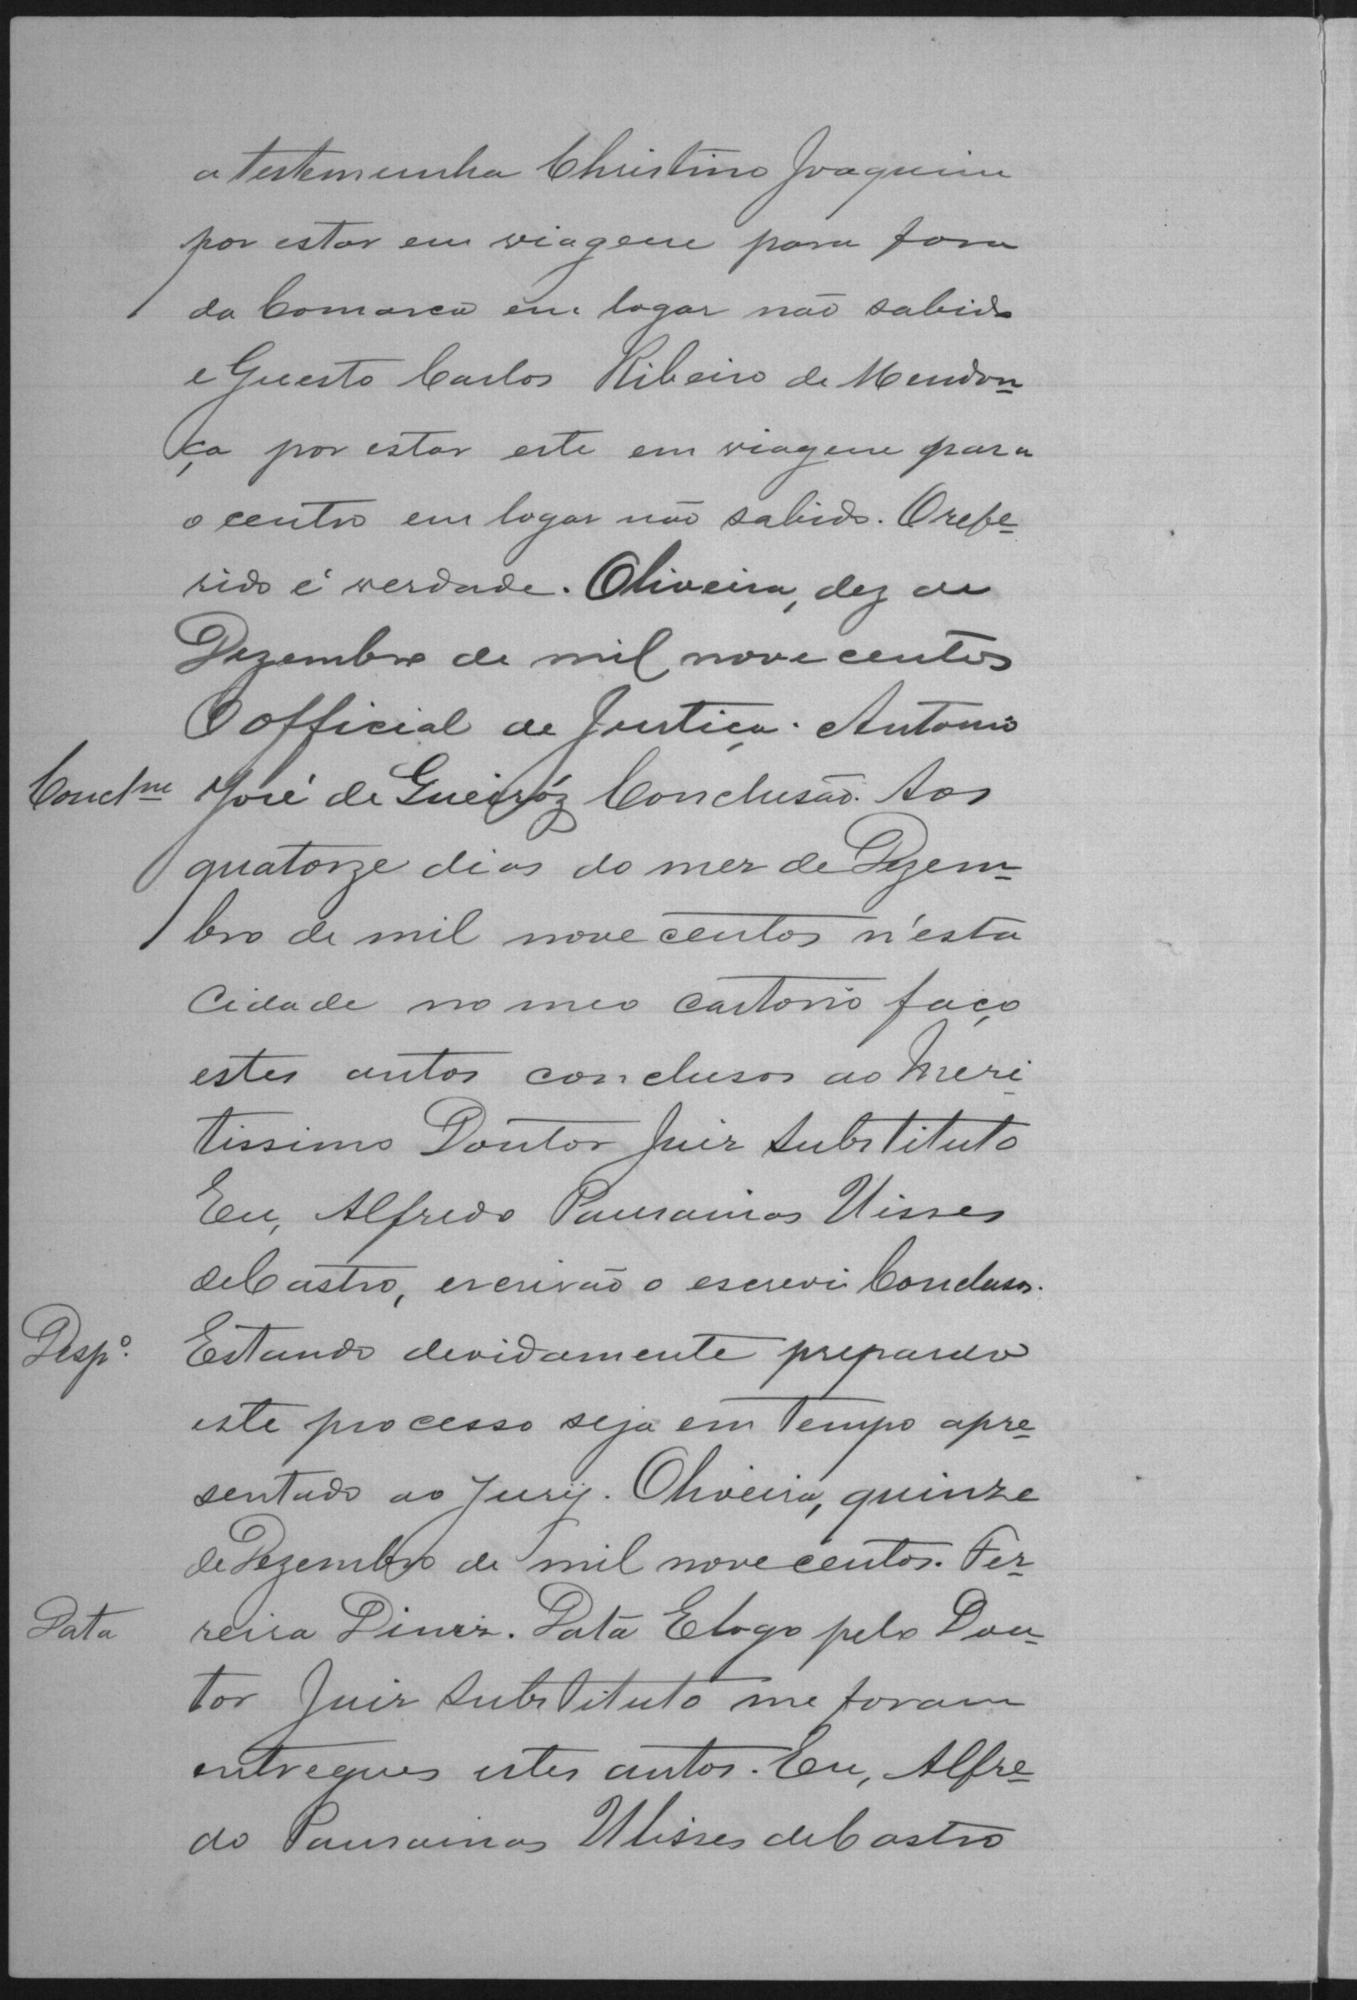 a testemunha Christino Joaquim
por estar em viagem para fora
da Comarca em logar não sabido
e Guesto Carlos Ribeiro de Mendon-
ça por estar este em viagem para
o centro em logar não sabido. O refe-
rido é verdade. Oliveira, dez de
Dezembro de mil nove centos
O official de Justiça. Antonio
Conclm José de Queiróz Conclusão. Aos
quatorze dias do mez de Dezem-
bro de mil nove centos n'esta
Cidade no meo cartorio faço
estes autos conclusos ao Meri-
tissimo Doutor Juiz Substituto
Eu, Alfredo Pausainas Ulisses
de Castro, escrivão o escrevi Conclusos.
Despo. Estando devidamente preparado
este processo seja em tempo apre-
sentado ao Jury. Oliveira, quinze
de Dezembro de mil nove centos. Fer-
Data reira Diniz. Data E logo pelo Dou-
tor Juiz Substituto me foram
entregues estes autos. Eu, Alfre-
do Pausainas Ulisses de Castro